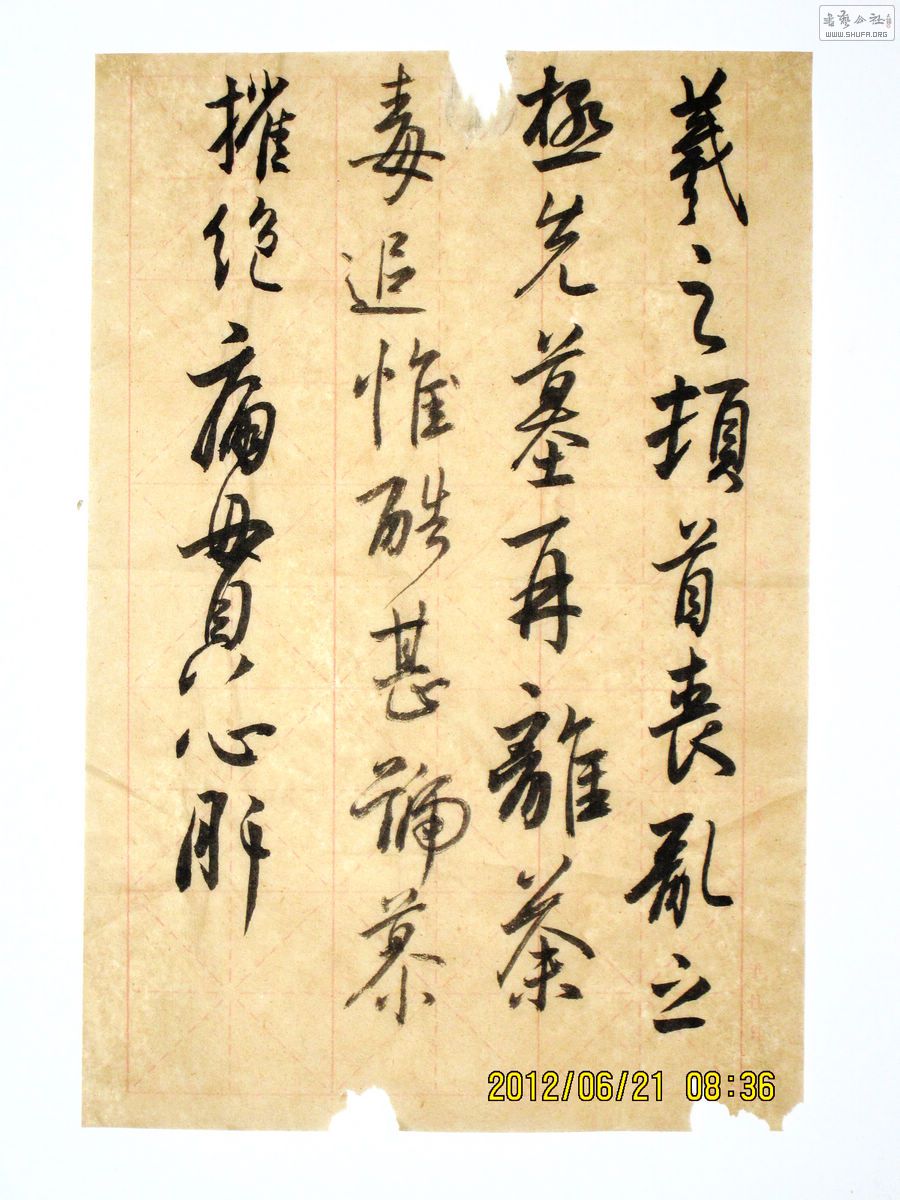 羲之頓首喪亂之
極先墓再離荼
毒追惟酷甚號慕
摧絕痛貫心肝
2012/06/21 08:36
书艺公社
WWW.SHUFA.ORG